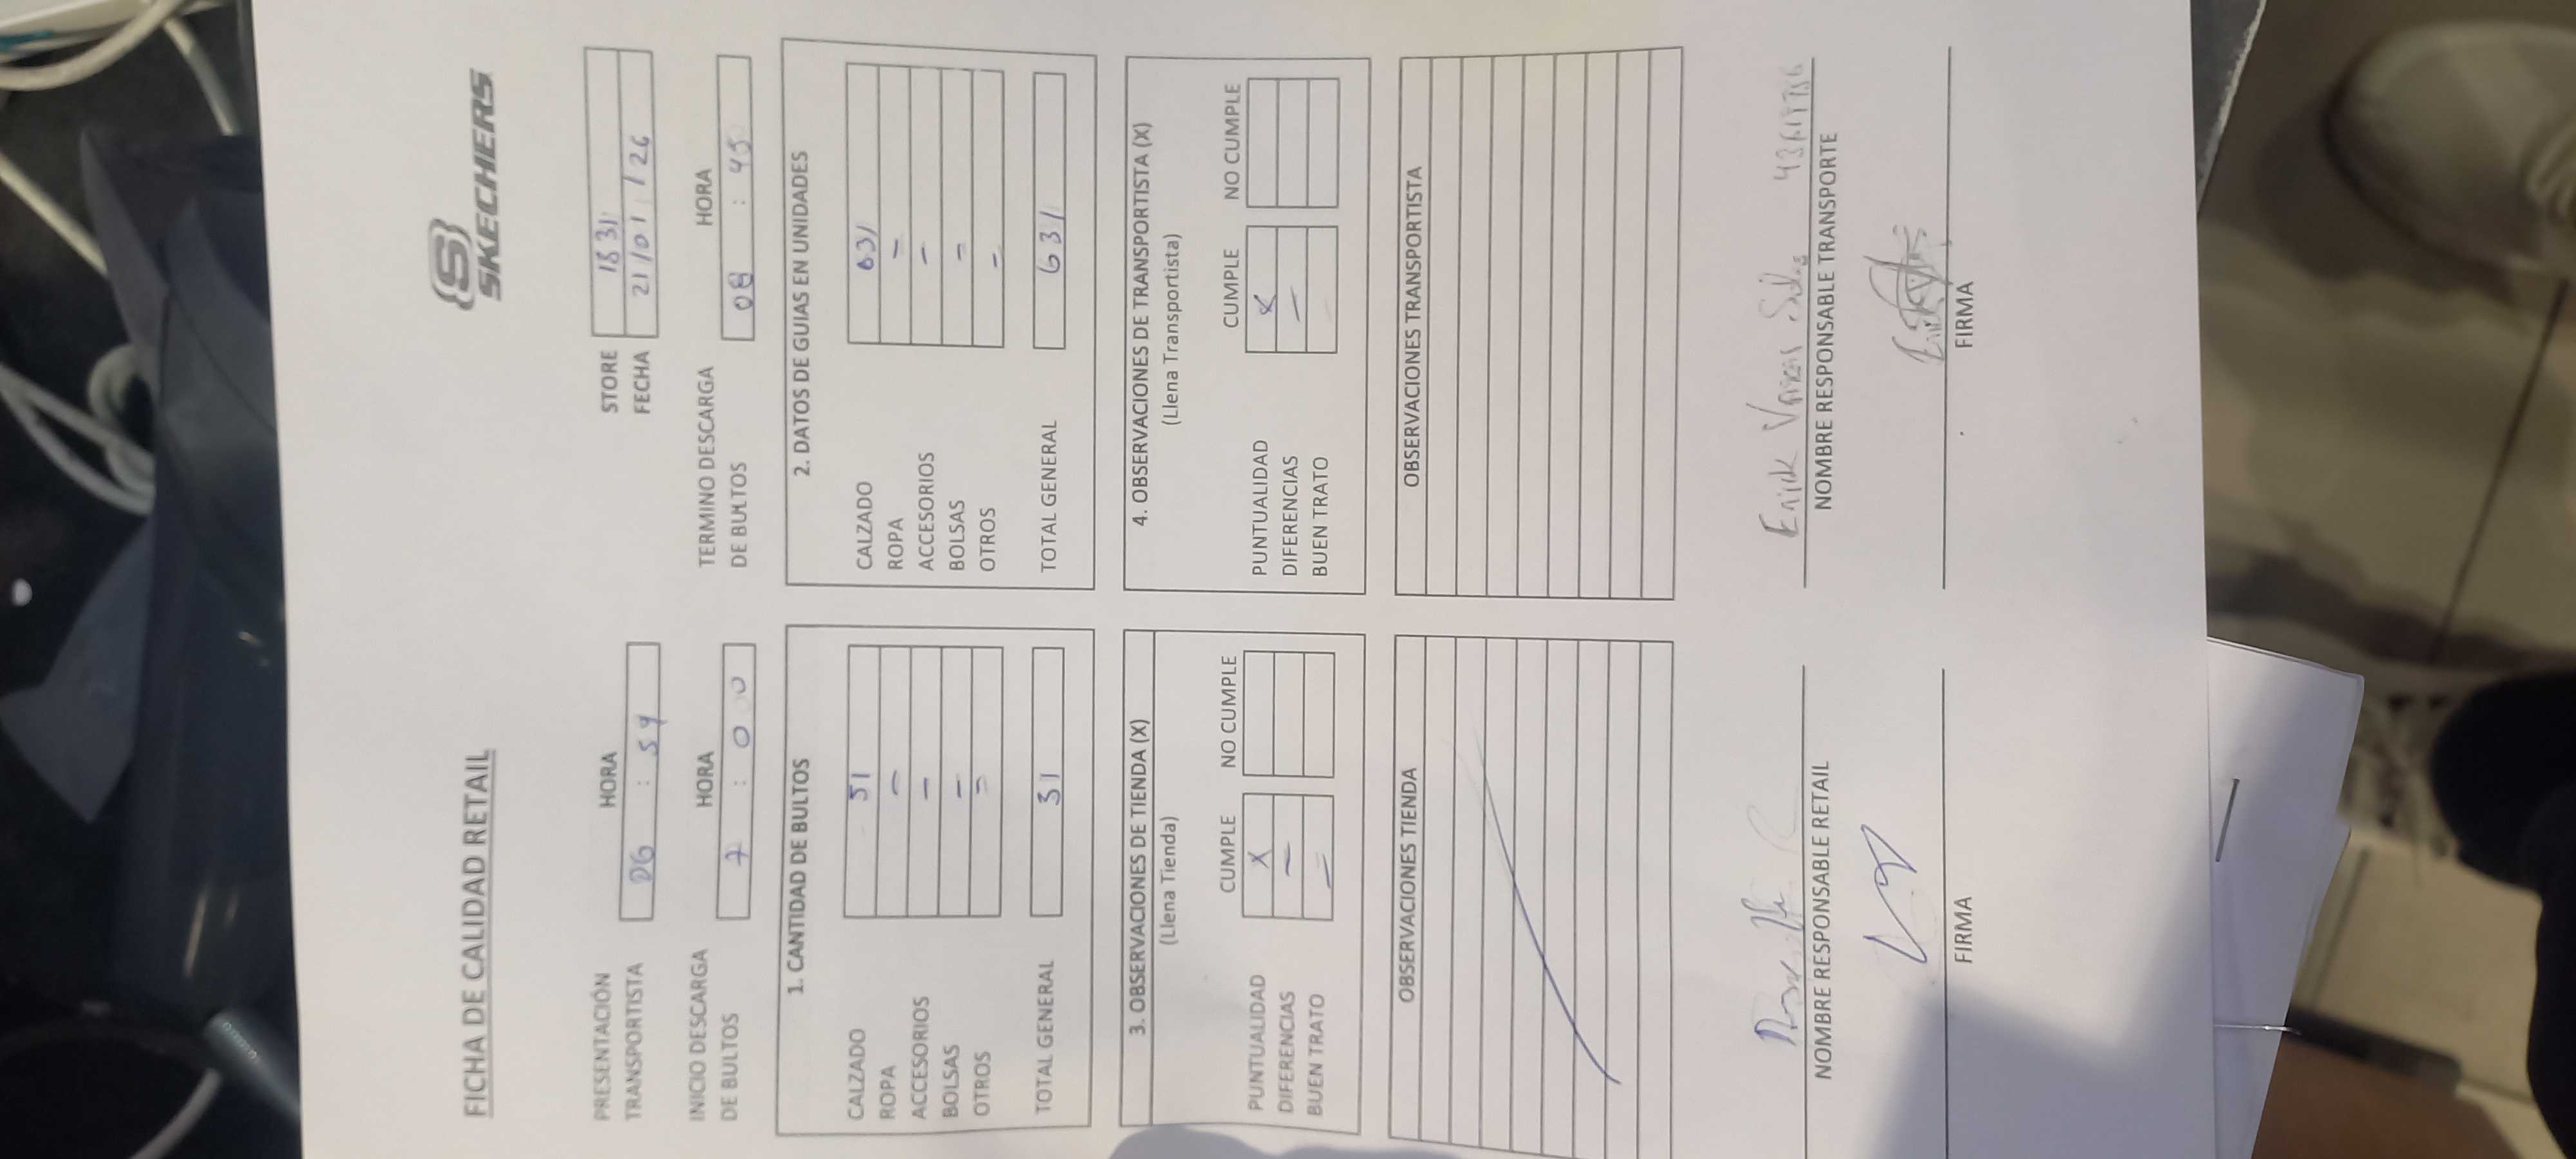 FICHA DE CALIDAD RETAIL
SKECHERS
STORE 1831
FECHA 21/01/26
PRESENTACIÓN
TRANSPORTISTA
HORA
06 : 59
INICIO DESCARGA
DE BULTOS
HORA
7 : 00
TERMINO DESCARGA
DE BULTOS
HORA
08 : 45
1. CANTIDAD DE BULTOS
CALZADO 51
ROPA -
ACCESORIOS -
BOLSAS -
OTROS -
TOTAL GENERAL 51
2. DATOS DE GUIAS EN UNIDADES
CALZADO 631
ROPA -
ACCESORIOS -
BOLSAS -
OTROS -
TOTAL GENERAL 631
3. OBSERVACIONES DE TIENDA (X)
(Llena Tienda)
CUMPLE NO CUMPLE
PUNTUALIDAD X
DIFERENCIAS -
BUEN TRATO -
4. OBSERVACIONES DE TRANSPORTISTA (X)
(Llena Transportista)
CUMPLE NO CUMPLE
PUNTUALIDAD X
DIFERENCIAS -
BUEN TRATO
OBSERVACIONES TIENDA
OBSERVACIONES TRANSPORTISTA
NOMBRE RESPONSABLE RETAIL
FIRMA
Erick
NOMBRE RESPONSABLE TRANSPORTE
FIRMA